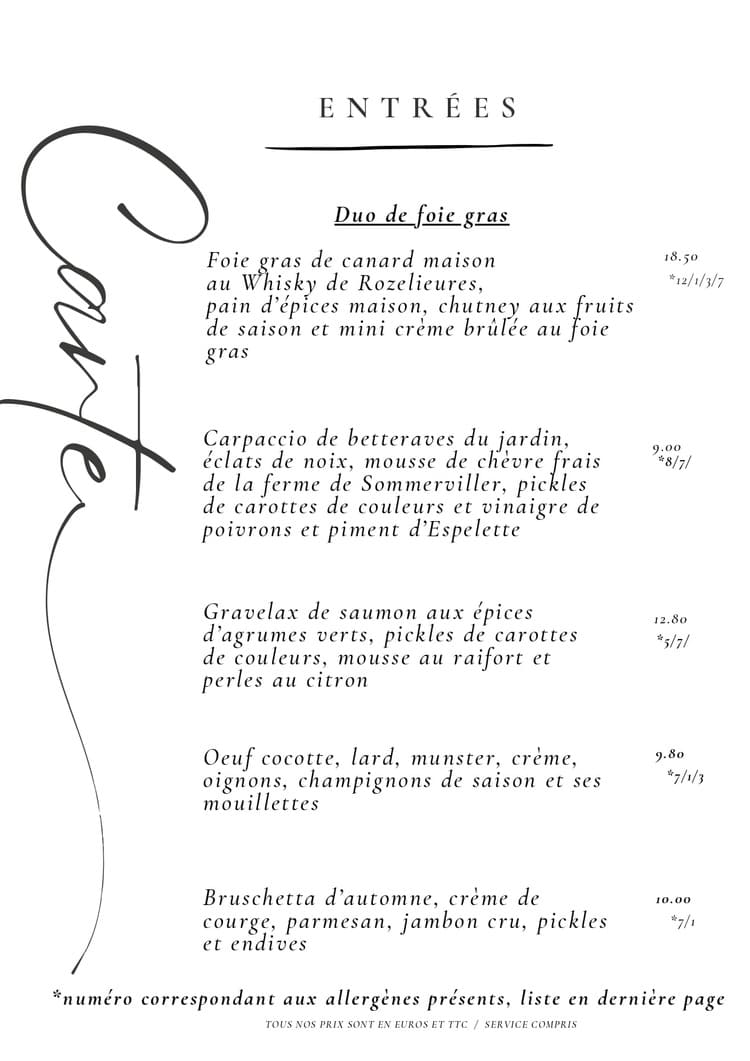 ENTRÉES
Carte
Duo de foie gras
Foie gras de canard maison
au Whisky de Rozelieures,
pain d'épices maison, chutney aux fruits
de saison et mini crème brûlée au foie
gras
18.50
*12/1/3/7
Carpaccio de betteraves du jardin,
éclats de noix, mousse de chèvre frais
de la ferme de Sommerviller, pickles
de carottes de couleurs et vinaigre de
poivrons et piment d'Espelette
9.00
*8/7/
Gravelax de saumon aux épices
d'agrumes verts, pickles de carottes
de couleurs, mousse au raifort et
perles au citron
12.80
*5/7/
Oeuf cocotte, lard, munster, crème,
oignons, champignons de saison et ses
mouillettes
9.80
*7/1/3
Bruschetta d'automne, crème de
courge, parmesan, jambon cru, pickles
et endives
10.00
*7/1
*numéro correspondant aux allergènes présents, liste en dernière page
TOUS NOS PRIX SONT EN EUROS ET TTC / SERVICE COMPRIS